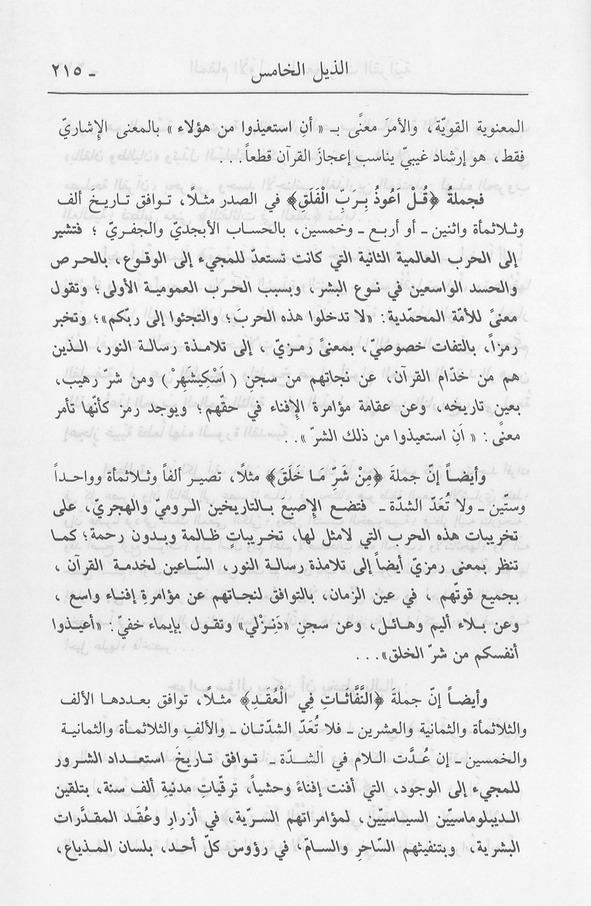 الذيل الخامس ـ ٢١٥
المعنوية القويّة، والأمرَ معنًى بـ « أنِ استعيذوا من هؤلاء » بالمعنى الإشاريّ
فقط، هو إرشاد غيبيّ يناسب إعجازَ القرآن قطعاً...
فجملةُ ﴿قُلْ اَعُوذُ بِرَبِّ الْفَلَقِ﴾ في الصدر مثلاً، توافق تاريخَ ألف
وثلاثمأة واثنين ـ أو أربع ـ وخمسين، بالحساب الأبجديّ والجفريّ ؛ فتشير
إلى الحرب العالمية الثانية التي كانت تستعدّ للمجيء إلى الوقوع، بالحرص
والحسد الواسعين في نوع البشر، وبسبب الحرب العمومية الأولى؛ وتقول
معنىً للأمّة المحمّدية: «لا تدخلوا هذه الحربَ؛ والتجئوا إلى ربّكم»؛ وتخبر
رمزاً، بالتفات خصوصيّ، بمعنىً رمزيّ ، إلى تلامذة رسالة النور، الذين
هم من خدّام القرآن، عن نجاتهم من سجنِ ( اَسْكِيشَهِرْ ) ومن شرّ رهيب،
بعين تاريخه، وعن عقامة مؤامرة الإفناء في حقّهم؛ ويوجد رمز كأنّها تأمر
معنًى : « اَنِ استعيذوا من ذلك الشرّ »..
وأيضاً إنّ جملةَ ﴿مِنْ شَرِّ مَا خَلَقَ﴾ مثلا، تصير ألفاً وثلاثمأة وواحداً
وستّين ـ ولا تُعَدّ الشدّة ـ فتضع الإصبع بالتاريخين الروميّ والهجريّ، على
تخريبات هذه الحرب التي لامثل لها، تخريباتٍ ظالمة وبدون رحمة؛ كما
تنظر بمعنى رمزيّ أيضاً إلى تلامذة رسالة النور، السّاعين لخدمة القرآن ،
بجميع قوتّهم ، في عين الزمان، بالتوافق لنجاتهم عن مؤامرةِ إفناء واسع ،
وعن بلاء أليم وهائل، وعن سجنِ «دَنِزْلي» وتقول بإيماء خفيّ: «أعيذوا
أنفسكم من شرّ الخلق»...
وأيضاً إنّ جملةَ ﴿النَّفَّاثَاتِ فِي الْعُقَدِ﴾ مثلاً، توافق بعددها الألف
والثلاثمأة والثمانية والعشرين ـ فلا تُعَدّ الشدّتان ـ والألفِ والثلاثمأة والثمانية
والخمسين ـ إن عُدَّت اللام في الشدّة ـ توافق تاريخَ استعداد الشرور
للمجيء إلى الوجود، التي أفنت إفناءً وحشياً، ترقّياتِ مدنيةِ ألف سنة، بتلقين
الديبلوماسيّين السياسيّين، لمؤامراتهم السريّة، في أزرارِ وعُقَد المقدَّرات
البشرية، وبتنفيثهم السّاحرِ والسامّ، في رؤوس كلّ أحد، بلسان المذياع،